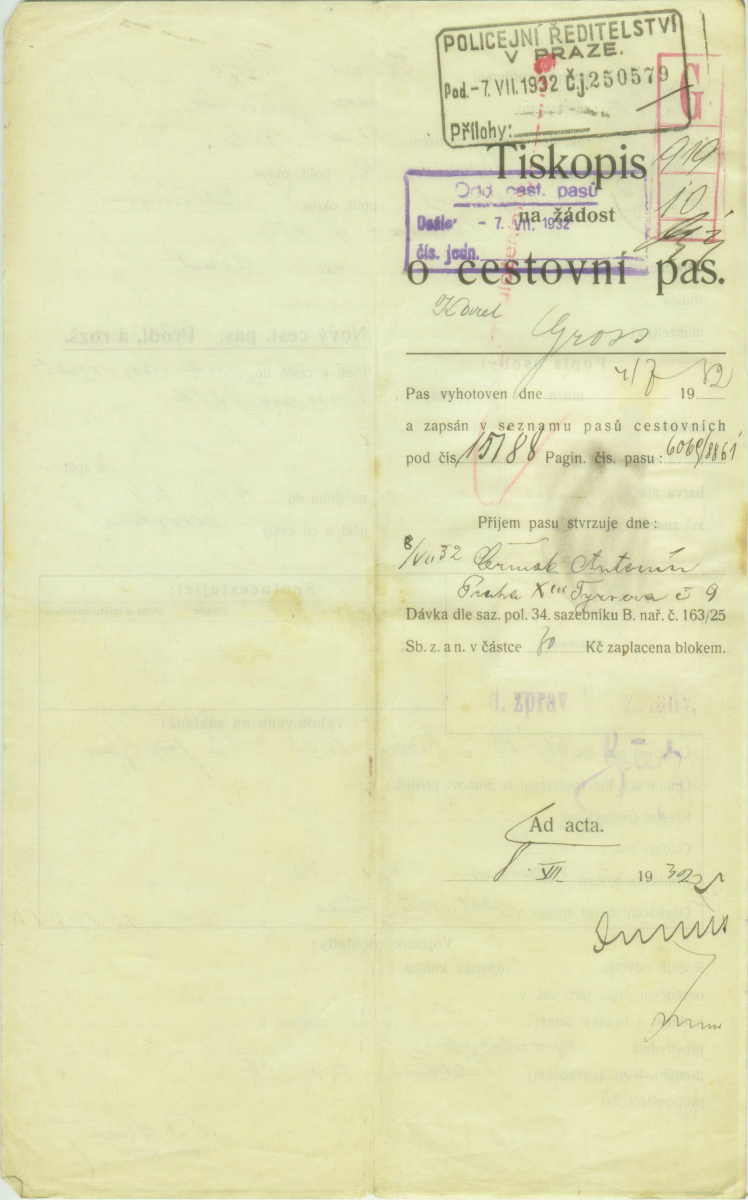 POLICEJNÍ ŘEDITELSTVÍ
V PRAZE.
Pod. -7. VII. 1932 Č.j. 250579
Přílohy:
G
Tiskopis
919
Odd. cest. pasů
10
na žádost
Došlo: - 7. VII. 1932
čís. jedn.
o cestovní pas.
Karel
Gross
Pas vyhotoven dne 7/7 19 32
a zapsán v seznamu pasů cestovních
pod čís. 15188 Pagin. čís. pasu: 6069/8861
Příjem pasu stvrzuje dne:
8/VII 32 Čermák Antonín
Praha XIII Tyrsova č 9
Dávka dle saz. pol. 34. sazebníku B. nař. č. 163/25
Sb. z. a n. v částce 80 Kč zaplacena blokem.
d. zpráv
Ad acta.
8. VII. 19 32